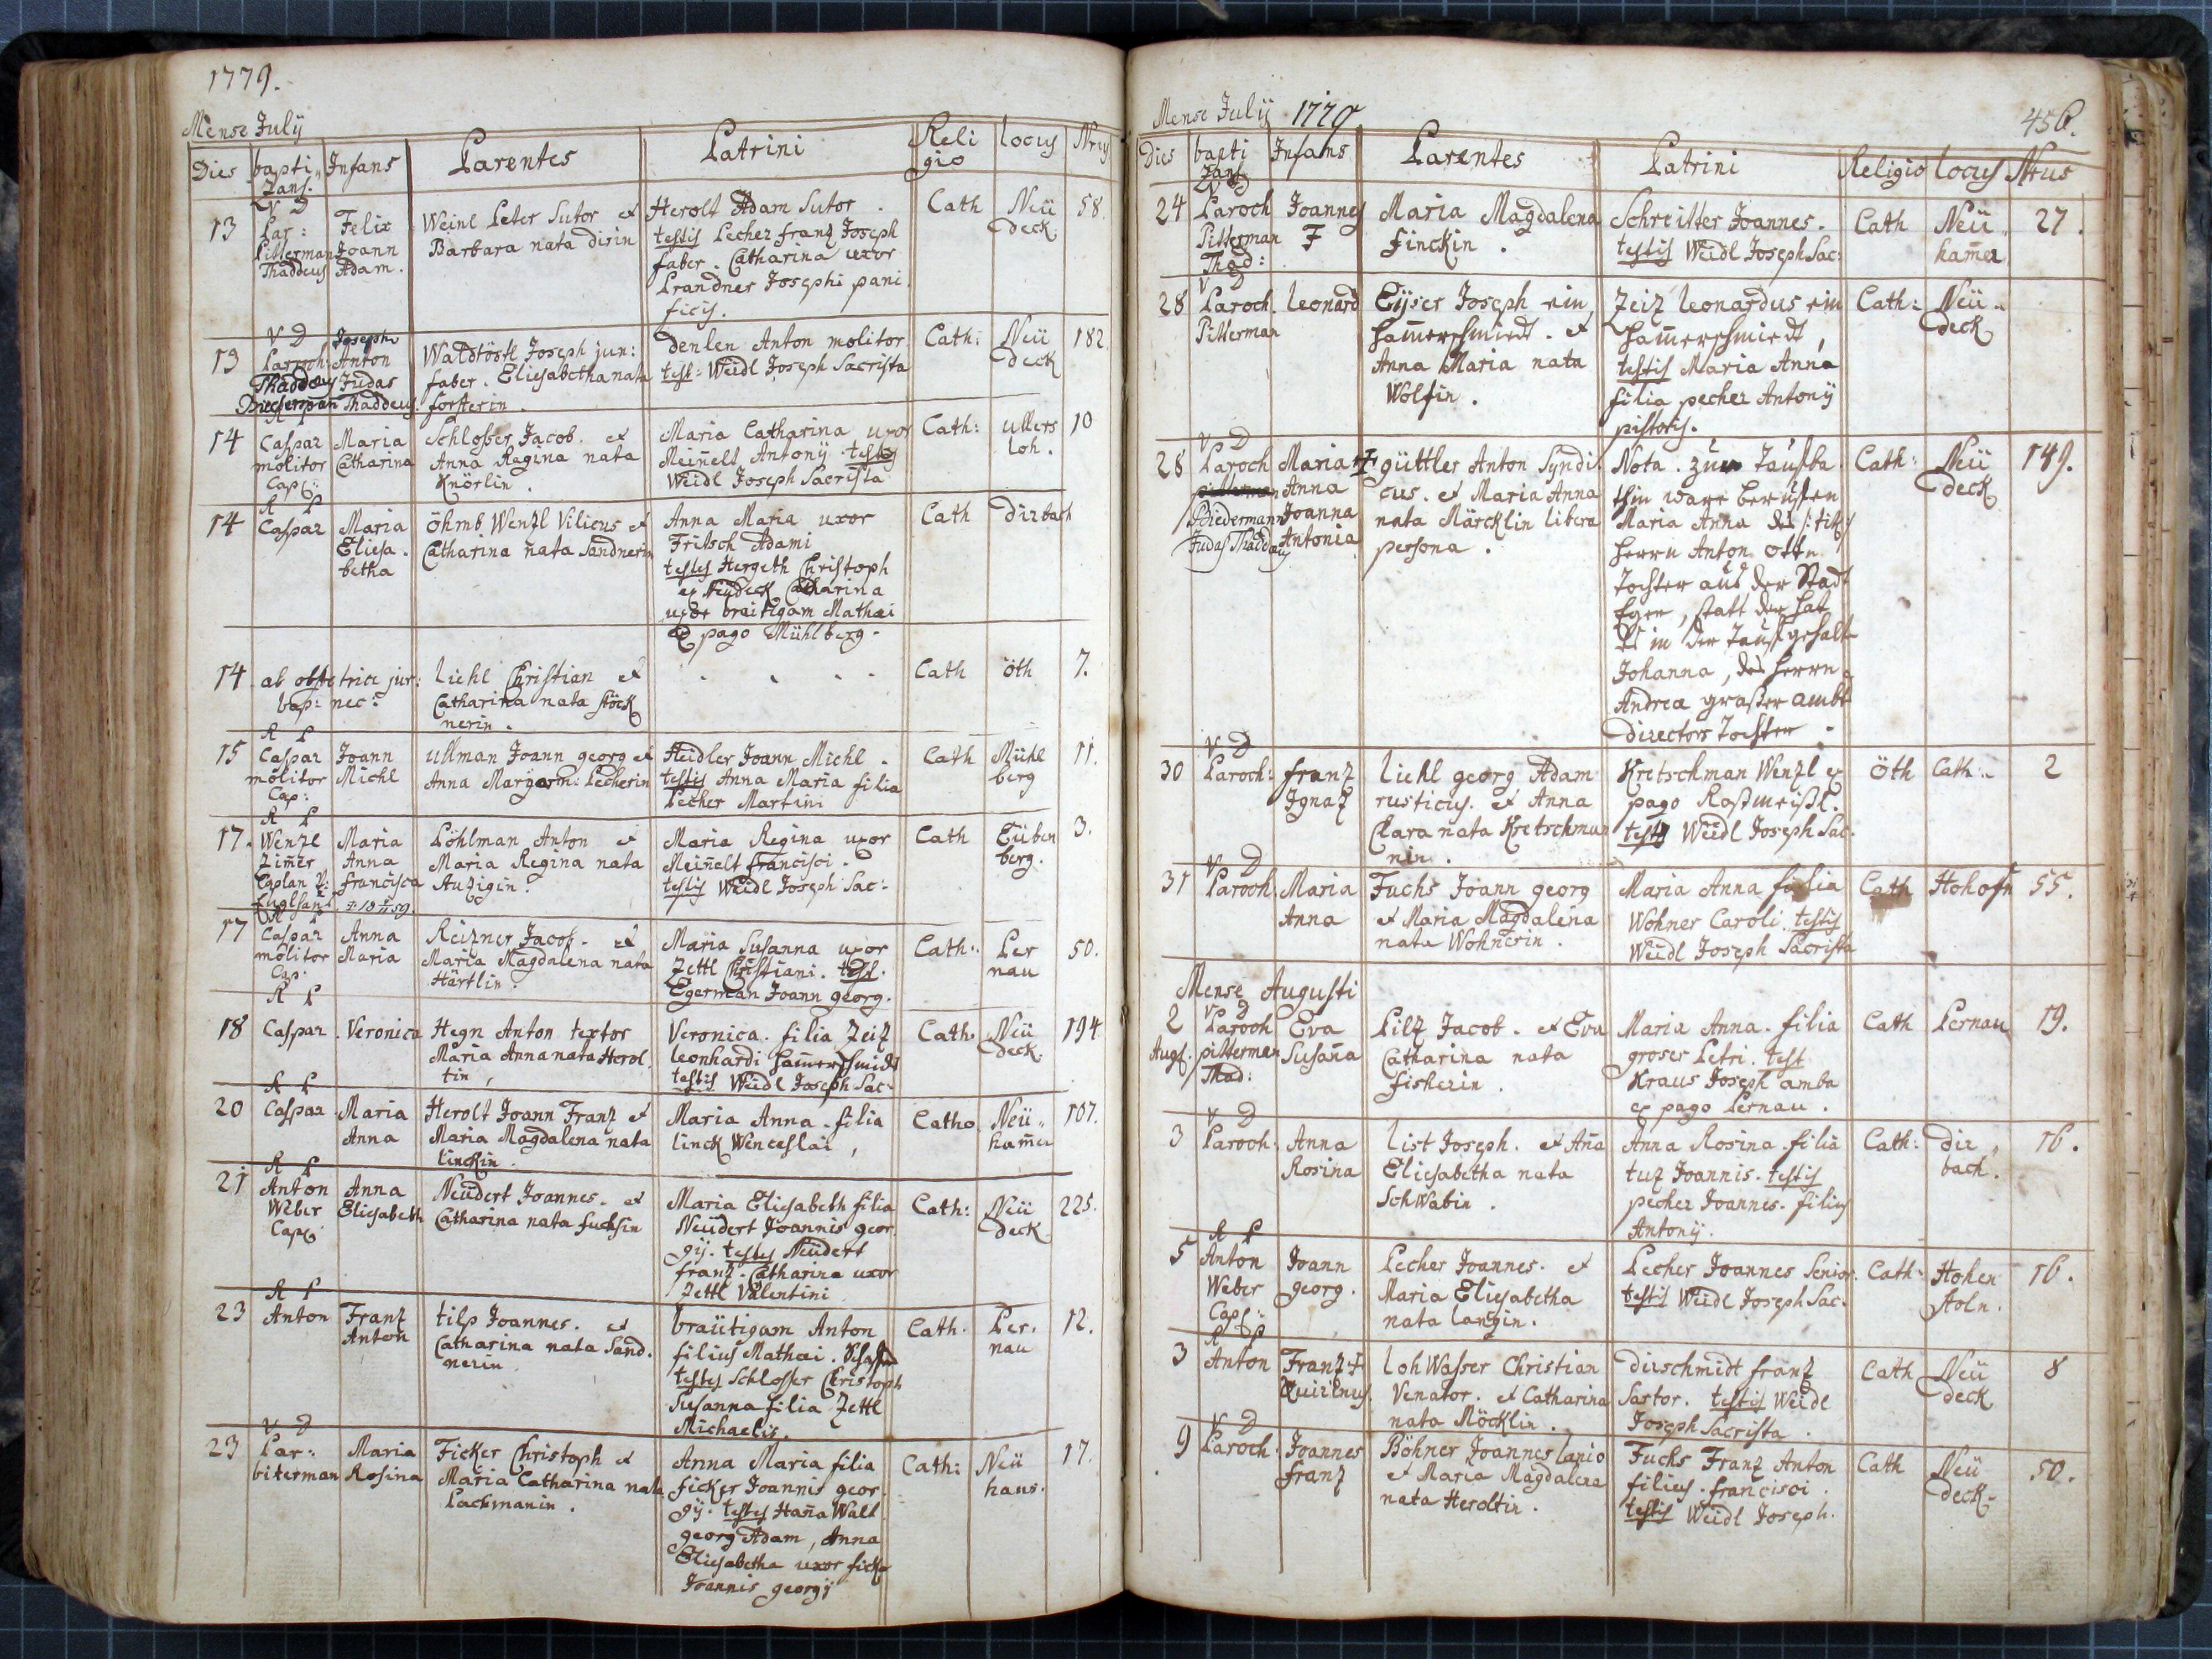 1779.
Mense Julij
Dies bapti- Infans Parentes Patrini Reli locus Nrus
zans. gio
V D
13 Par: Felix Weinl Peter Sutor et Herolt Adam Sutor. Cath Neü 58.
Pitterman Joann Barbara nata dirin testis Pecher franz Joseph deck.
Thaddeus Adam. faber. Catharina uxor
Prandner Josephi pani
ficis.
V D Joseph
13 Paroch: Anton Waldtöstl Joseph jun: denlen Anton molitor Cath: Neü 182
Thaddeus Judas faber. Eliesabetha nata test: Weidl Joseph Sacrista deck
Thaddeus. forsterin.
R P
14 Caspar Maria Schlosser Jacob. et Maria Catharina uxor Cath: ullers 10
molitor Catharina Anna Regina nata Meinelt Antonÿ testis loh.
Cap: Knörlin. Weidl Joseph Sacrista
R P
14 Caspar Maria öhmb Wenzl Vilicus et Anna Maria uxor Cath dirbach
Eliesa- Catharina nata Sandnerin Fritsch Adami
betha testes Hergeth Christoph
ex Neudeck Catharina
uxor breitigam Mathaei
e pago Mühlberg.
14 ab obstetrice jur: liehl Christian et - - - - Cath öth 7.
bap: nec: Catharina nata stöck
nerin.
R P
15 Caspar Joann ullman Joann georg et Heidler Joann Michl. Cath Mühl 11.
molitor Michl Anna Margarin: Pecherin testis Anna Maria filia berg
Cap: Pecher Martini
R P
17. Wenzl Maria Pöhlman Anton et Maria Regina uxor Cath Eüben 3.
Zimer Anna Maria Regina nata Meinelt francisci. berg.
Caplan francisca Auzigin. testis Weidl Joseph Sac:
R P
17 Caspar Anna Reizner Jacob. et Maria Susanna uxor Cath: Per 50.
molitor Maria Maria Magdalena nata Zettl Christiani. test. nau
Cap. Härtlin. Egerman Joann georg.
R P
18 Caspar. Veronica Hegn Anton textor Veronica. filia Zeiz Cath. Neü 194
Maria Anna nata Herol leonhardi Hamerschmidt deck.
tin, testis Weidl Joseph Sac.
R P
20 Caspar Maria Herolt Joann Franz et Maria Anna. filia Catho. Neü 107.
Anna Maria Magdalena nata linck Wenceslai, hamer
linckin.
R P
21 Anton Anna Neüdert Joannes. et Maria Eliesabeth filia Cath: Neü 225.
Weber Eliesabeth Catharina nata fuchsin Neüdert Joannis geor deck
Cap. gij. testes Neüdert
franz. Catharina uxor
Zettl Valentini
R P
23 Anton Franz tilp Joannes. et braütigam Anton Cath. Per. 12.
Anton Catharina nata Sand. filius Mathaei. nau
nerin testes Schlosser Christoph
Susanna filia Zettl
Michaelis.
V D
23 Par: Maria Ficker Christoph et Anna Maria filia Cath: Neü 17.
biterman Rosina Maria Catharina nata ficker Joannis geor. haus.
Lackmanin. gij. testes Hana Walt
georg Adam, Anna
Eliesabetha uxor ficker
Joannis georgij
Mense Julij 1779 456.
Dies bapti Infans Parentes Patrini Religio locus Nrus
zans
V D
24 Paroch Joannes Maria Magdalena Schreitter Joannes. Cath Neü. 27.
Pitterman Ŧ Finckin. testis Weidl Joseph Sac: hamer
Thad:
V D
28 Paroch. leonard Eÿser Joseph ein Zeiz leonardus ein Cath: Neü-
Pitterman Hamerschmiedt. et Hamerschmiedt, deck
Anna Maria nata testis Maria Anna
Wolfin. filia pecher Antonÿ
pistoris.
V D
28 Paroch Maria Ŧ güttler Anton Syndi. Nota. zur Taufba. Cath: Neü 149.
Anna cus. et Maria Anna thin ware beruffen deck
Biedermann Joanna nata Märcklin libera Maria Anna des |:tit:|
Judas Thaddäus Antonia persona. Herrn Anton otten
Tochter aus der Stadt
Eger, statt der hat
es in der Tauf gehalten
Johanna, des Herrn
Andrea graßer ambt
directors Tochter.
V D
30 Paroch: franz liehl georg Adam Kretschman Wenzl ex öth Cath: 2
Ignaz rusticus. et Anna pago Roßmeißl.
Clara nata Kretschman testis Weidl Joseph Sac.
nin.
V D
31 Paroch. Maria Fuchs Joann georg Maria Anna filia Cath Hohofn 55.
Anna et Maria Magdalena Wohner Caroli. testis
nata Wohnerin. Weidl Joseph Sacrista
Mense Augusti
V D
2 Paroch Eva Pilz Jacob. et Eva Maria Anna. filia Cath Pernau 19.
Augs. pitterman Susana Catharina nata groser Petri. test
Thad: fischerin. Kraus Joseph amba
ex pago Pernau.
V D
3 Paroch: Anna list Joseph. et Ana Anna Rosina. filia Cath: dir 16.
Rosina Eliesabetha nata tuz Joannis. testis bach.
SchWabin. pecher Joannes. filius
Antonij.
R P
5 Anton Joann Pecher Joannes. et Pecher Joannes Senior. Cath. Hohen 16.
Weber georg. Maria Eliesabetha testis Weidl Joseph Sac. stoln.
Cap: nata langin.
R P
3 Anton Franz Ŧ lohWasser Christian dirschmidt franz Cath Neü 8
Quirinus Venator. et Catharina Sartor. testis Weidl deck
nata Möcklin. Joseph Sacrista.
V D
9 Paroch. Joannes Böhner Joannes lanio Fuchs Franz Anton Cath Neü 50.
franz et Maria Magdalena filius. francisci. deck.
nata Heroltin. testis Weidl Joseph.